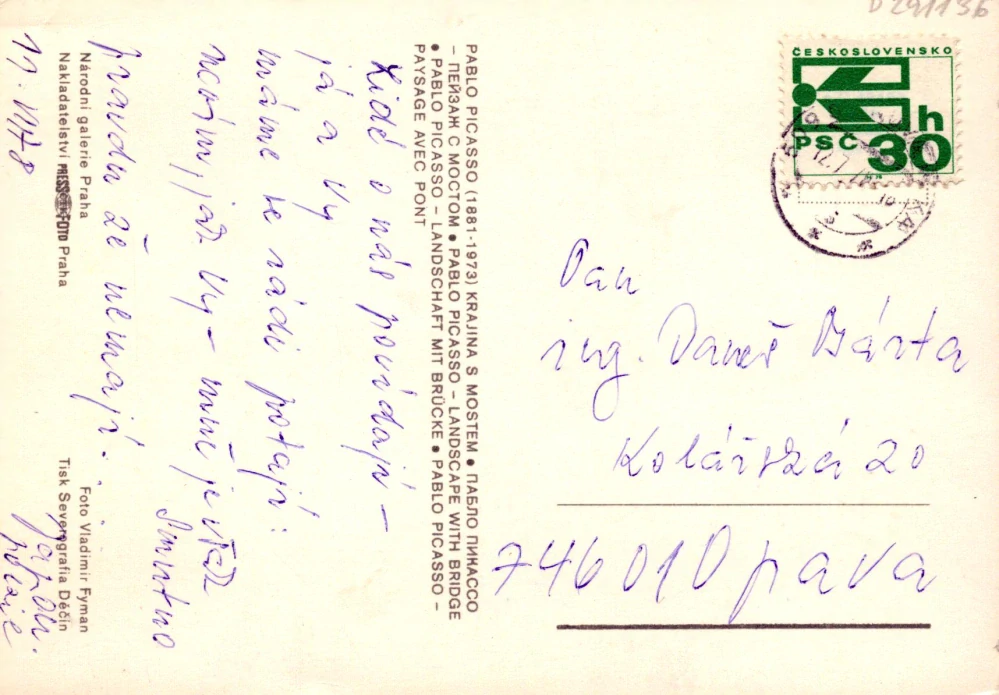 D 291136
ČESKOSLOVENSKO
h
PSČ 30
PABLO PICASSO (1881-1973) KRAJINA S MOSTEM ● ПАБЛО ПИКАССО
– ПЕЙЗАЖ С МОСТОМ ● PABLO PICASSO – LANDSCAPE WITH BRIDGE
● PABLO PICASSO – LANDSCHAFT MIT BRÜCKE ● PABLO PICASSO –
PAYSAGE AVEC PONT
Lidé o nás povídají –
já a Vy
máme se rádi potají:
nevím, jak Vy – mně je však
smutno
pravdu že nemají.
japon.
poezie
Národní galerie Praha
Foto Vladimír Fyman
Nakladatelství PRESSFOTO Praha
Tisk Severografia Děčín
11. VII 78
Pan
ing. Daneš Bárta
Kolářská 20
74601 Opava